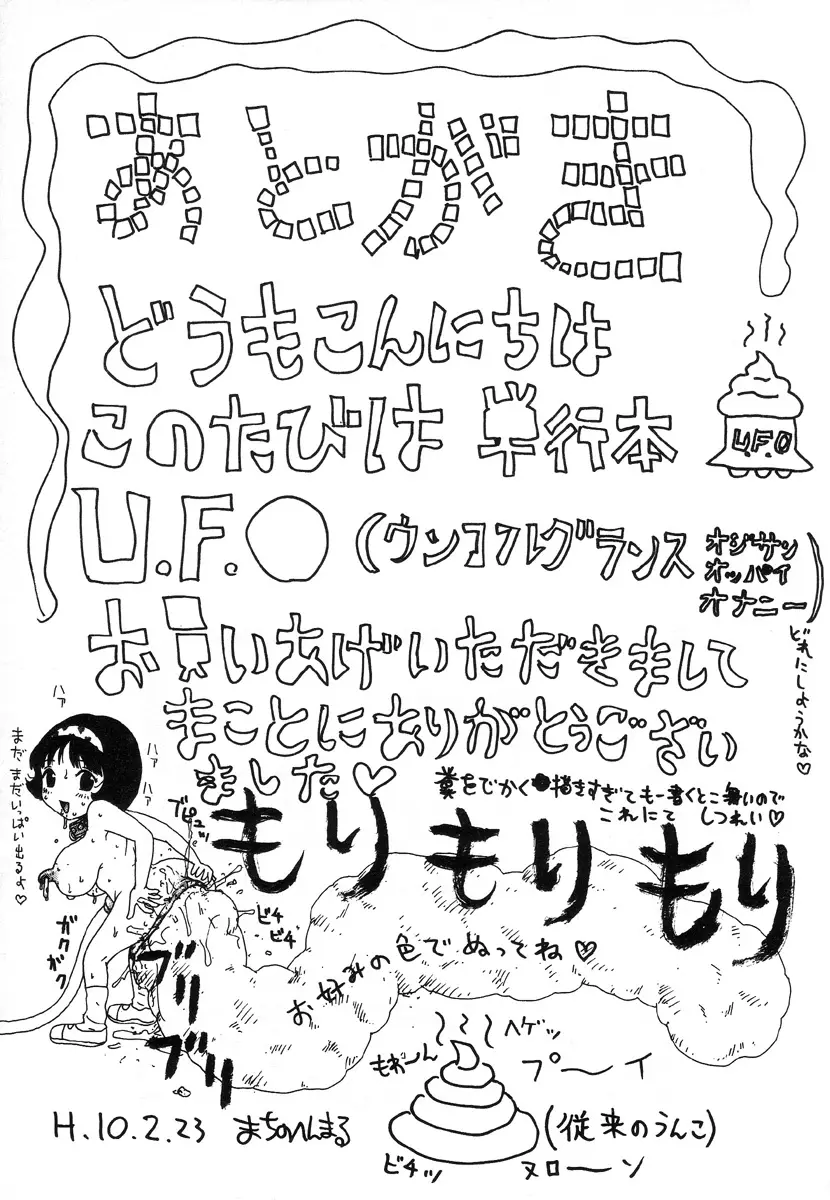 あとがき
どうもこんにちは
このたびは 単行本
U.F.O
U.F.O (ウンコフルグランス オジサン
オッパイ
オナニー)
どれにしようかな♡
お買いあげいただきまして
まことにありがとうござい
ました♡
糞をでかく描きすぎてもー書くとこ無いので
これにて しつれい♡
ハァ
ハァ
ハァ
まだまだいっぱい出るよ♡
ブピュッ
もり もり もり
ビチ
ビチ
ガクガク
ブリブリ
お好みの色でぬってね♡
ヘゲッ
もわーん
プ〜イ
(従来のうんこ)
ビチッ
ヌロ〜ン
H.10.2.23